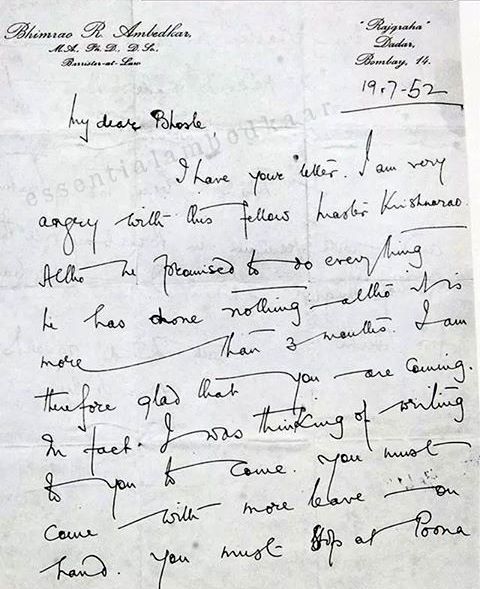 Bhimrao R. Ambedkar,
M.A. Ph. D. D. Sc.
Barrister-at-Law
"Rajgraha"
Dadar,
Bombay, 14.
19.7-52
essentialambedkaar
My dear Bhosle,
I have your letter. I am very
angry with this fellow Master Krishnarao.
Altho he promised to do everything
he has done nothing altho it is
more than 3 months. I am
therefore glad that you are coming.
In fact I was thinking of writing
to you to come. You must
come with more leave on
hand. You must stop at Poona